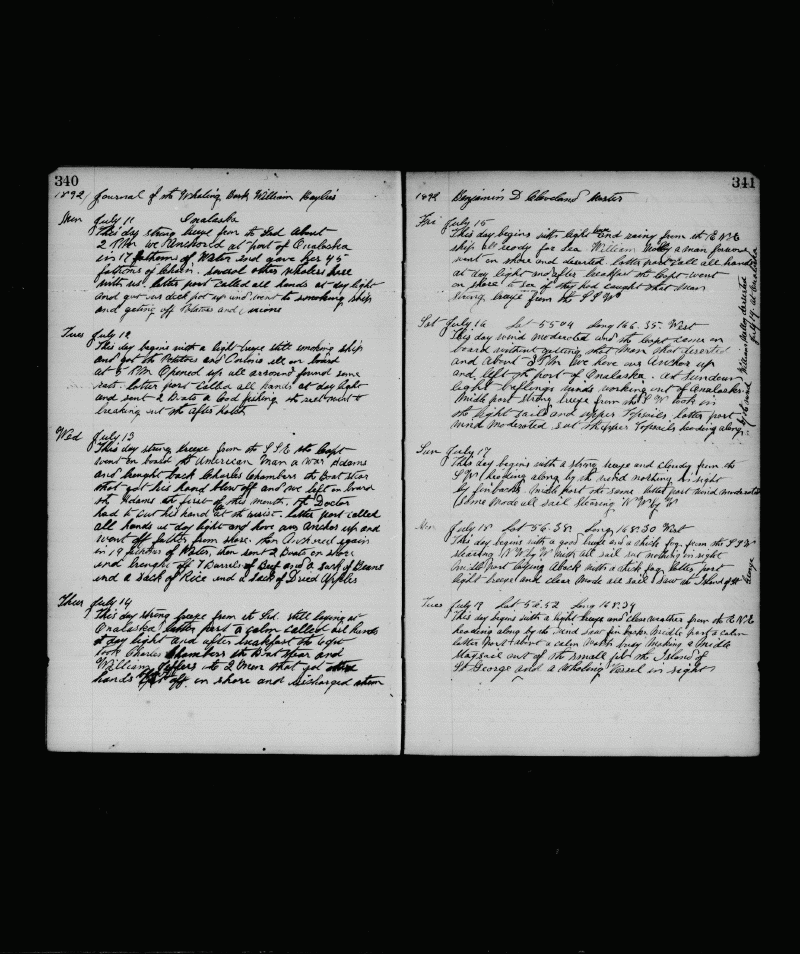 340
1892 Journal of the Whaling Bark William Baylies
Mon July 11 Onalaska
This day strong breeze from the Sd. About
2 P.M. we Anchord at port of Onalaska
in 17 fathoms of Water and gave her 45
fathoms of Chain. several other whalers here
with us. latter part called all hands at day light
and got our deck pot up and went to smoking ship
and getting off Potatoes and
Tues July 12
This day begins with a light breeze still smoking ship
and got the Potatoes and Onions all on board
at 5 P.M. Opened up all around found some
rats. latter part called all hands at day light
and sent 2 Boats a Cod fishing the rest went to
breaking out the after hold
Wed July 13
This day strong breeze from the S.S.E the Capt
went on board the American Man a War Adams
and brought back Charles Chambers the Boat stear
that got his hand blew off and we left on board
the Adams the first of this month. the Doctor
had to cut his hand at the wrist. latter part called
all hands at day light and hove our Anchor up and
went off farther from shore. then Anchored again
in 19 fathoms of Water, then sent 2 Boats on shore
and brought off 7 Barrels of Beef and a sack of Beans
and a Sack of Rice and a Sack of Dried Apples
Thur July 14
This day strong breeze from the Sd. still laying at
Onalaska latter part a calm called all hands
at day light and after breakfast the Capt
took Charles Chambers the Boat Stear and
William the 2 Men that got there
hands off. on shore and discharged them
341
1892 Benjamin D Cleveland Master
Fri July 15
This day begins with light and rainy from the E.N.E
ship all ready for Sea William a man
went on shore and deserted. latter part call all hands
at day light and after breakfast the Capt went
on shore to see if they had caught that Man
strong breeze from the S.S.W
Sat July 16 Lat 55.04 Long 166.35. West
This day wind moderated and the Capt came on
board without getting that Man that deserted
and About 3 P.M. we hove our Anchor up
and left the port of Onalaska at Sundown
light Baffling winds working out of Onalaska.
Midle part strong breeze from the S.W took in
the light sails and upper Topsails, latter part
wind moderated set the upper Topsails heading along
by the wind
William deserted
July 14. at Onalaska
Sun July 17
This day begins with a strong breeze and cloudy from the
S.W. heading along by the wind nothing in sight
by finbacks. Midle part the same latter part wind moderated
some made all sail Stearing N.W. by W
Mon July 18 Lat 56.38. Long 168.30 West
This day begins with a good breeze and a thick fog. from the S.S.W
stearing N.W. by W with all sail set nothing in sight
Midle part laying Aback with a thick fog, latter part
light breeze and clear made all sail. Saw the Island of St
George
Tues July 19 Lat 56.52 Long 168.39
This day begins with a light breeze and clear weather from the E.N.E
heading along by the wind saw fin backs. Middle part a calm
latter part about a calm Watch busy Making a Middle
Staysail out of the small Jib the Island of
St. George and a Whaling Vessel in sight